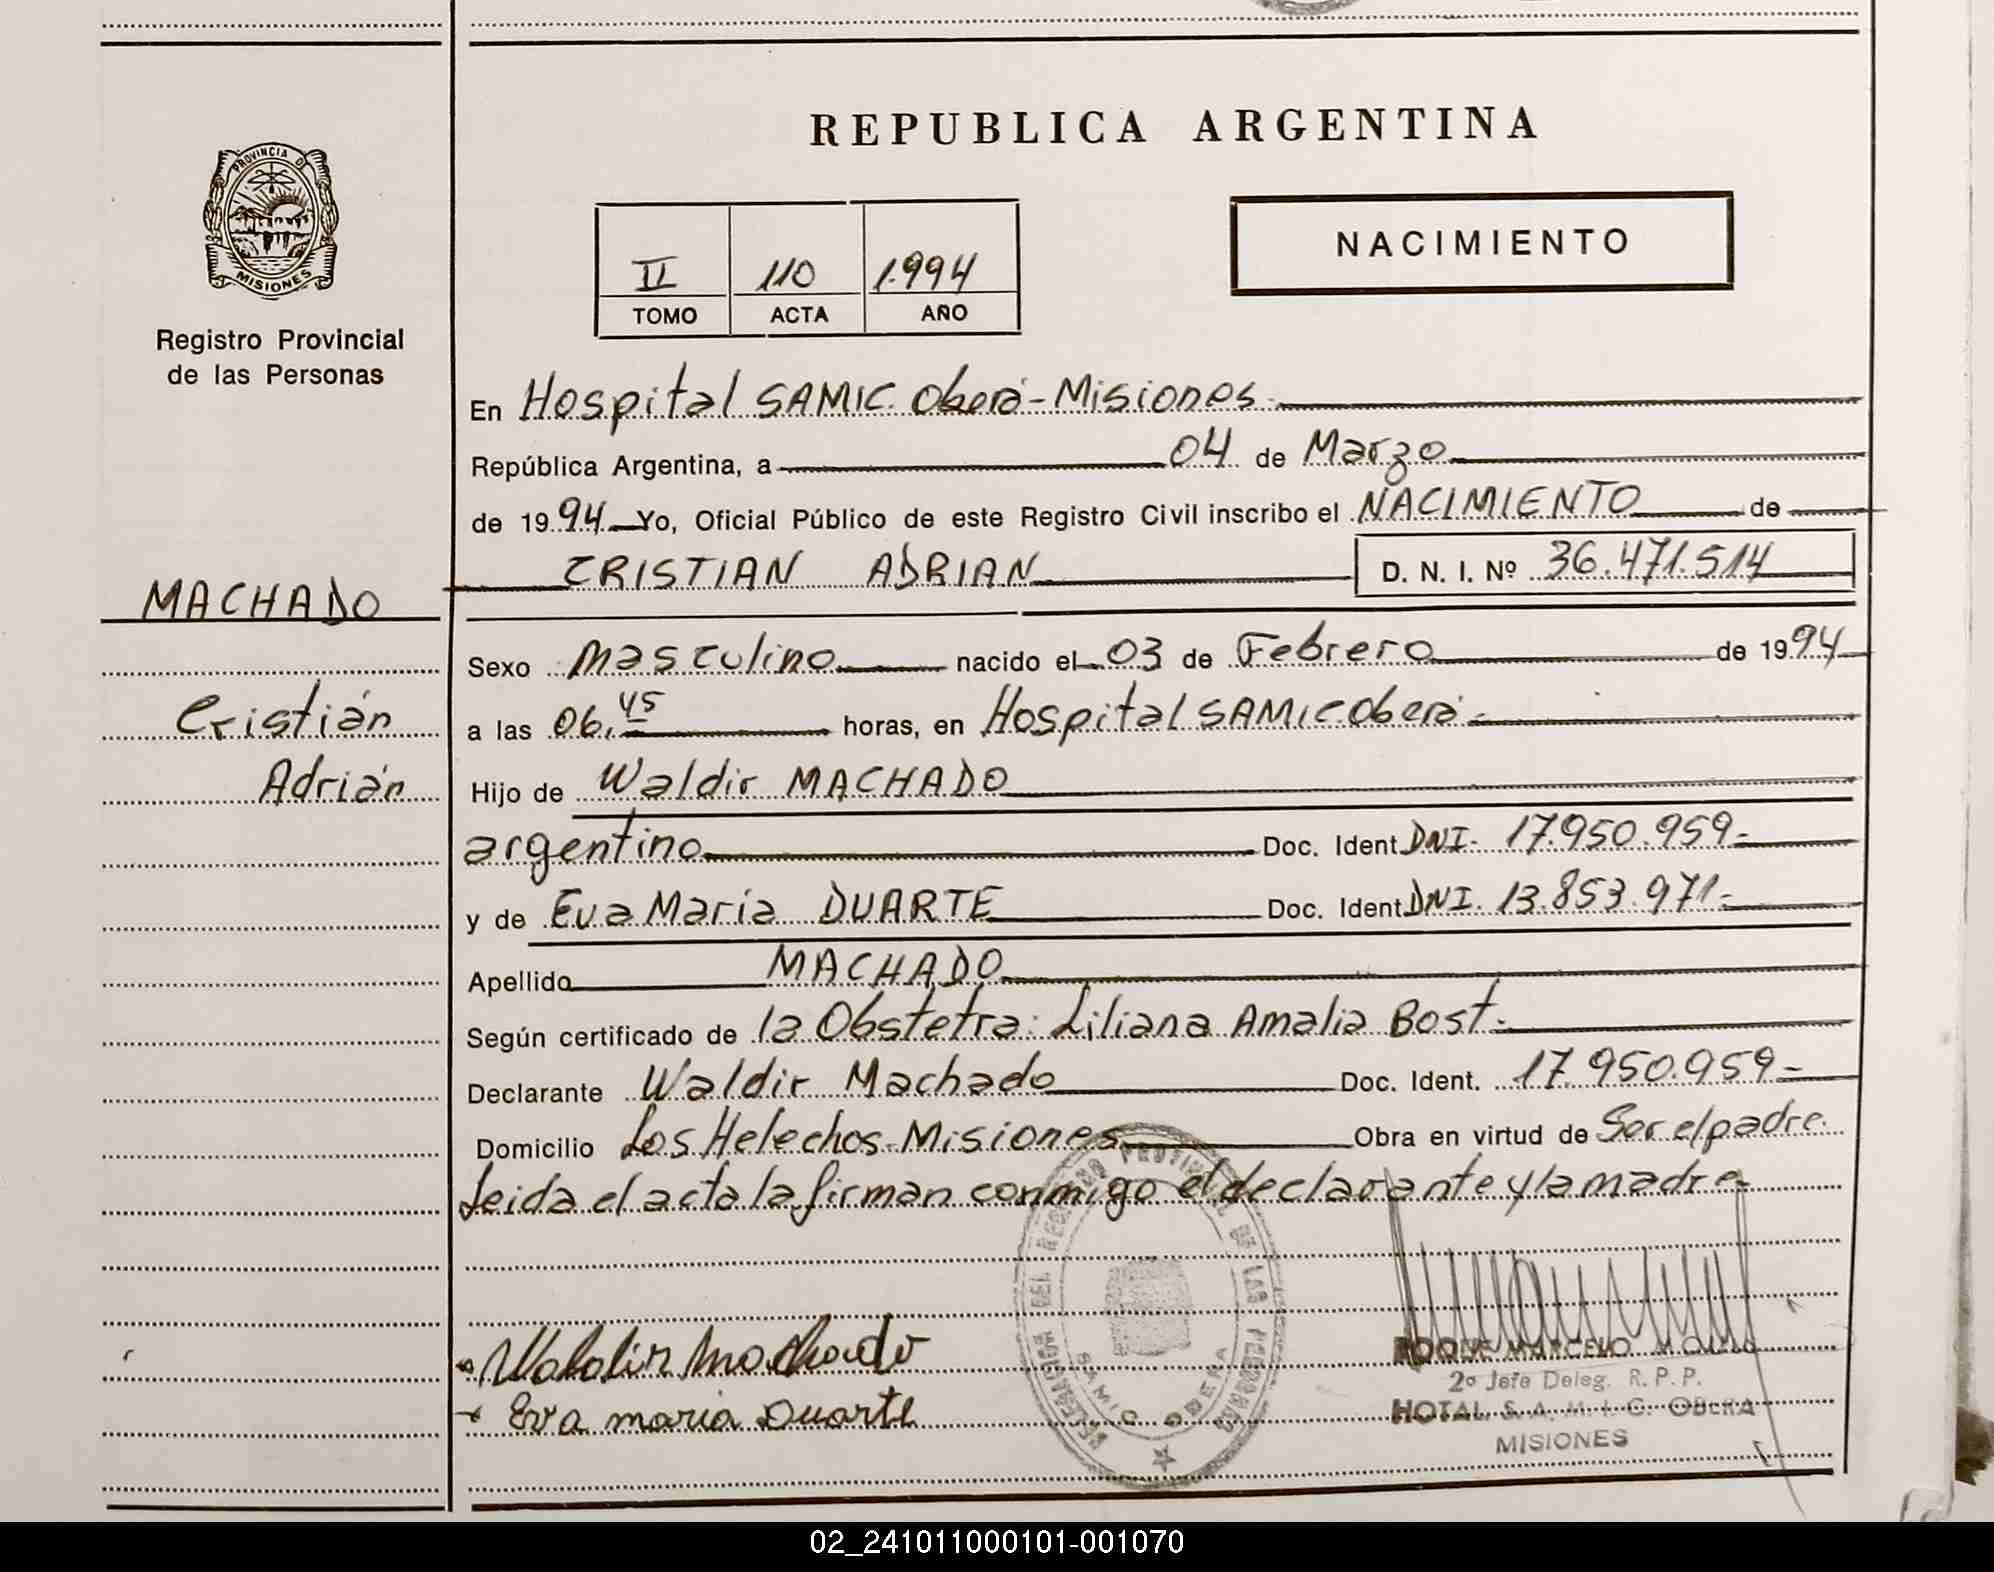 REPUBLICA ARGENTINA
PROVINCIA D
MISIONES
Registro Provincial
de las Personas
II 110 1.994
TOMO ACTA AÑO
NACIMIENTO
En Hospital SAMIC. Oberá-Misiones.
República Argentina, a 04 de Marzo
de 1994 Yo, Oficial Público de este Registro Civil inscribo el NACIMIENTO de
CRISTIAN ADRIAN D. N. I. Nº 36.471.514
MACHADO
Sexo Masculino nacido el 03 de Febrero de 1994
Cristián
a las 06,45 horas, en Hospital SAMIC Oberá-
Adrián
Hijo de Waldir MACHADO
argentino Doc. Ident DNI- 17.950.959-
y de Eva María DUARTE Doc. Ident DNI. 13.853.971-
Apellido MACHADO
Según certificado de la Obstetra: Liliana Amalia Bost-
Declarante Waldir Machado Doc. Ident. 17.950.959-
Domicilio Los Helechos-Misiones Obra en virtud de Ser el padre.
Leida el acta la firman conmigo el declarante y la madre-
Waldir Machado
Eva maria Duarte
DELEGACION DEL REGISTRO PROVINCIAL DE LAS PERSONAS
SAMIC OBERA
ROQUE MARCELO
2º Jefe Deleg. R. P. P.
HOTAL S. A. M. I. C. OBERA
MISIONES
02_241011000101-001070